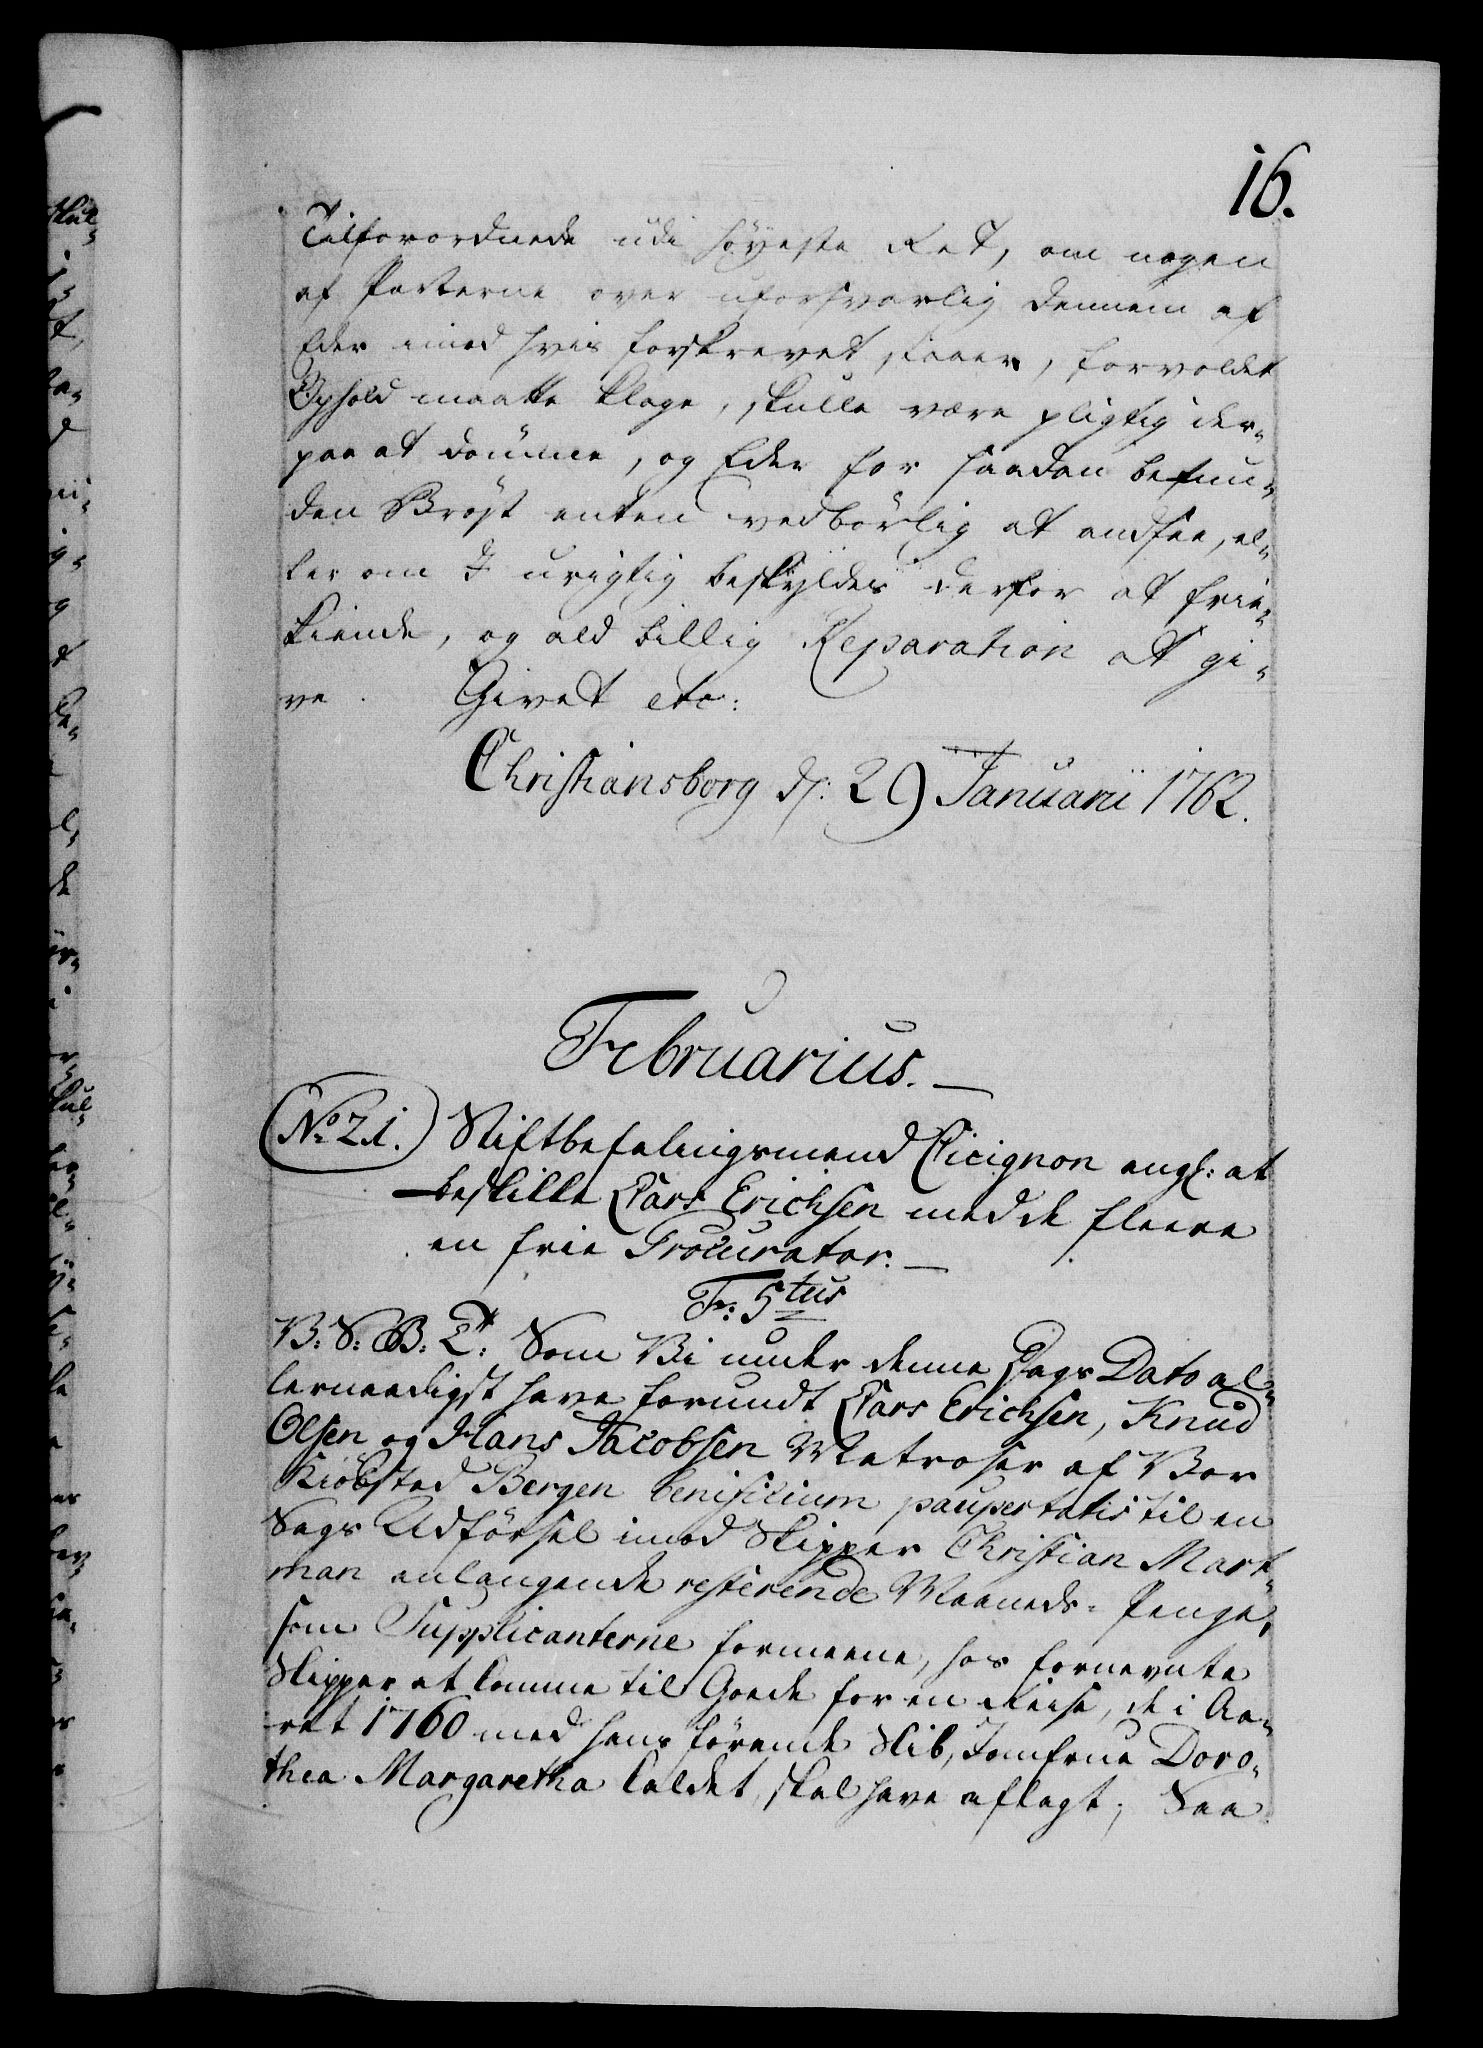 16.
Tilforordnede udi Høyeste Ret, om nogen
af Parterne over uforsvarlig dennem af
Eder imod hvis forskrevet staaer, forvoldet
Ophold maatte klage, skulle være pligtig der-
paa at dømme, og Eder for saadan befun-
den Brøst enten vedbørlig at andsee, el-
ler om I urigtig beskyldes derfor at frie-
kiende, og ald billig Reparation at gi-
ve. Givet etc:
Christiansborg d: 29 Januarii 1762.
Februarius.
No 21. Stiftbefalingsmand Cicignon angl: at
beskikke Lars Erichsen med de fleere
en frie Procurator.
Fr: 5tus
V: S: B: T: Som Vi under denne Dags Dato al-
lernaadigst have forundt Lars Erichsen, Knud
Olsen og Hans Jacobsen Matroser af Vor
Kiøbstad Bergen benificium paupertatis til en
Sags Udførsel imod Skipper Christian Mart-
man anlangende resterende Maaneds-Penge,
som Supplicanterne formeene, hos fornevnte
Skipper at komme til Goede for en Reise, de i Aa-
ret 1760 med hans førende Skib, Jomfrue Doro-
thea Margaretha kaldet, skal have aflagt; Saa